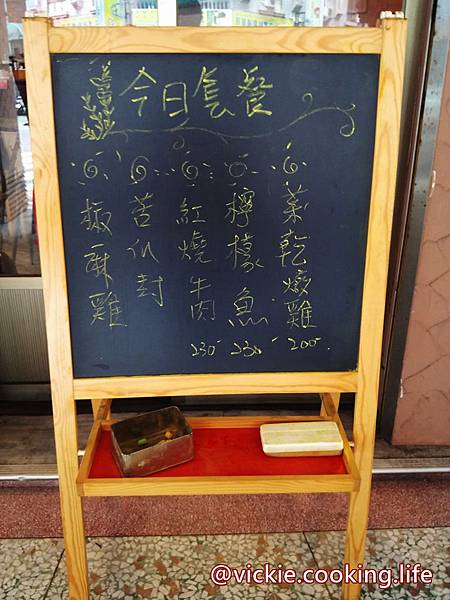 今日套餐
菜乾燉雞
200-
檸檬魚
230-
紅燒牛肉
230-
苦瓜封
椒麻雞
@vickie.cooking.life